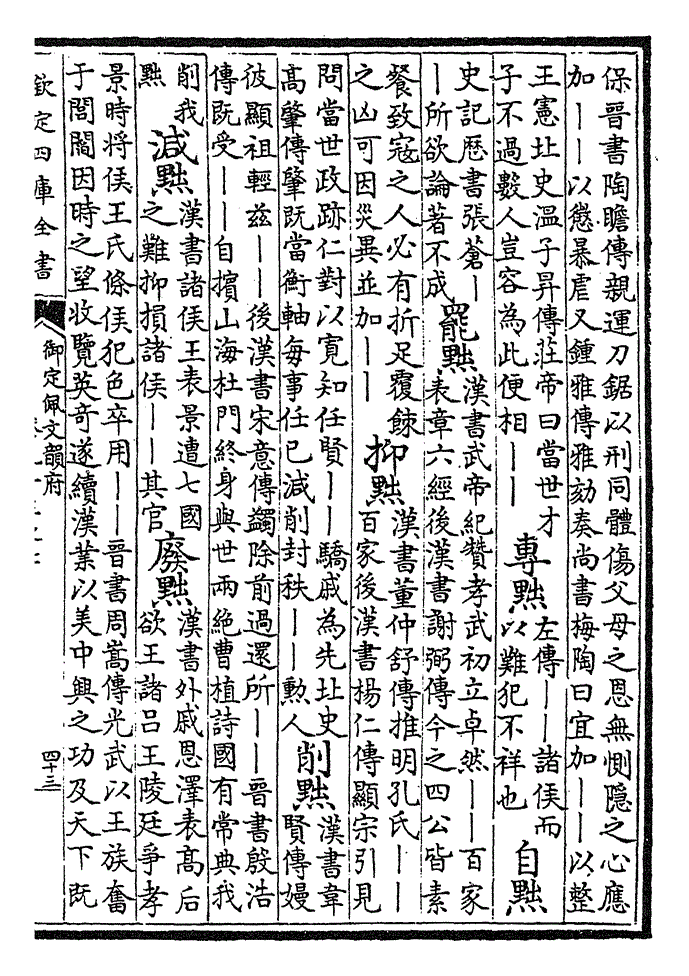 保晉書陶瞻傳親運刀鋸以刑同體傷父母之恩無惻隱之心應
加——以懲暴虐又鍾雅傳雅劾奏尚書梅陶曰宜加——以整
王憲北史溫子昇傳莊帝曰當世才
子不過數人豈容為此便相——
專黜
左傳——諸侯而
以難犯不祥也
自黜
史記歴書張蒼—
—所欲論著不成
罷黜
漢書武帝紀贊孝武初立卓然——百家
表章六經後漢書謝弼傳今之四公皆素
餐致寇之人必有折足覆餗
之凶可因災異並加——
抑黜
漢書董仲舒傳推明孔氏——
百家後漢書楊仁傳顯宗引見
問當世政跡仁對以寬知任賢——驕戚為先北史
高肇傳肇既當衡軸每事任已減削封秩——勲人
削黜
漢書韋
賢傳嫚
彼顯祖輕茲——後漢書宋意傳蠲除前過還所——晉書殷浩
傳既受——自擯山海杜門終身與世兩絶曹植詩國有常典我
削我
黜
減黜
漢書諸侯王表景遭七國
之難抑損諸侯——其官
廢黜
漢書外戚恩澤表髙后
欲王諸吕王陵廷爭孝
景時將侯王氏條侯犯色卒用——晉書周嵩傳光武以王族奮
于閭閻因時之望收覽英奇遂續漢業以美中興之功及天下既
欽定四庫全書
御定佩文韻府
四十三